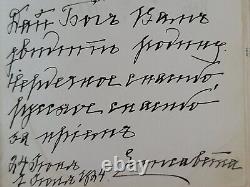 Дай Богъ Вамъ
увидѣть родину.
Сердечное спасибо,
русское спасибо
за пріемъ
24 Іюня
1934. Елисавета